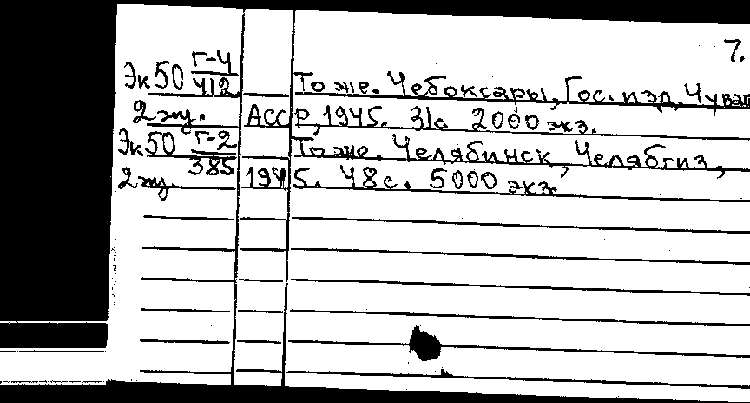 7.
Эк50 Г-4
412 То же. Чебоксары, Гос. изд. Чуваш
2 экз. АССР, 1945. 31с 2000 экз.
Эк50 Г-2 То же. Челябинск, Челябгиз,
385
2 экз. 1945. 48 с. 5000 экз.